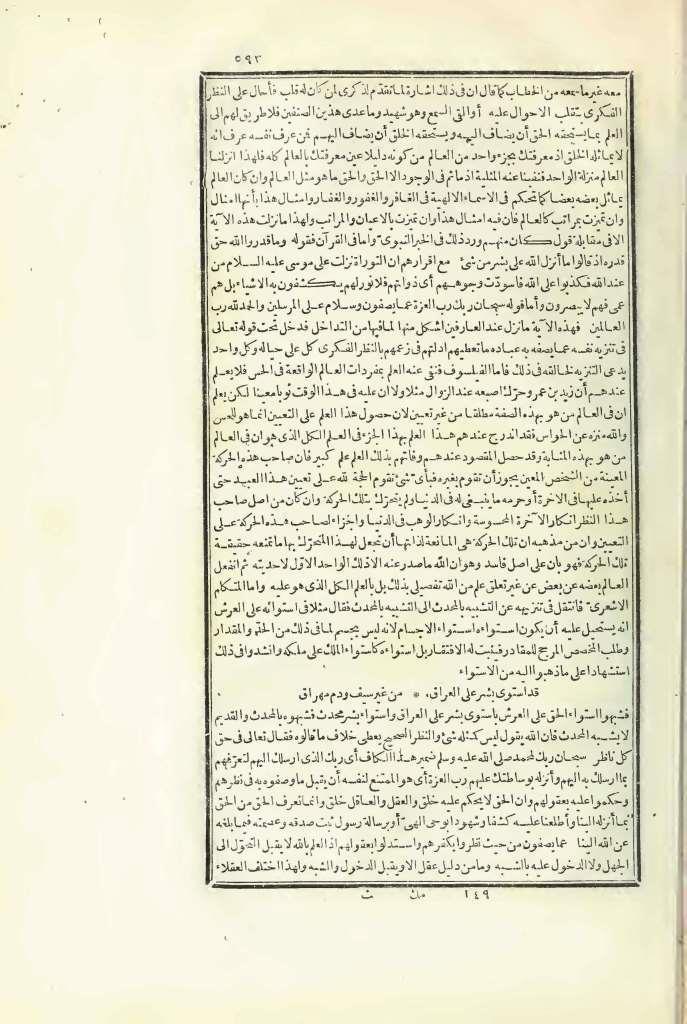 ٥٩٣
معه غير ما سمعه من الخطاب كما قال ان فى ذلك اشارة لما تقدّم لذكرى لمن كان له قلب فأحال على النظر
الفكرى بتقلب الاحوال عليه أو ألقى السمع وهو شهيد وما عدى هذين الصنفين فلا طريق لهم الى
العلم بما يستحقه الحق أن يضاف اليه وبما يستحقه الخلق أن يضاف اليهم فمن عرف نفسه عرف انه
لا يماثله الخلق اذ معرفتك بجزء واحد من العالم من كونه دليلا عين معرفتك بالعالم كله فلهذا انزلنا
العالم منزلة الواحد فنفينا عنه المثلية اذ ما ثم فى الوجود الا الحق والخلق ما هو مثل العالم وان كان العالم
يماثل بعضه بعضا كما تحكم فى الاسماء الالهية فى الغافر والغفور والغفار وامثال هذا بأنها امثال
وان تميزت بمراتب كالعالم فان فيه امثال هذا وان تميزت بالاعيان والمراتب ولهذا ما نزلت هذه الآية
الا فى مقابلة قول كان منهم ورد ذلك فى الخبر النبوى وأما فى القرآن فقوله وما قدروا الله حق
قدره اذ قالوا ما أنزل الله على بشر من شئ مع اقرارهم ان التوراة نزلت على موسى عليه السلام من
عند الله فكذبوا على الله فاسودّت وجوههم أى ذواتهم فلا نور لهم يكشفون به الاشياء بل هم
عمى فهم لا يبصرون وأما قوله سبحان ربك رب العزة عما يصفون وسلام على المرسلين والحمد لله رب
العالمين فهذه الآية ما نزل عند العارفين اشكل منها لما فيها من التداخل فدخل تحت قوله تعالى
فى تنزيه نفسه عما يصفه به عباده ما تعطيهم ادلتهم فى زعمهم بالنظر الفكرى كل على حياله وكل واحد
يدعى التنزيه لخالقه فى ذلك فأما الفيلسوف فنفى عنه العلم بمفردات العالم الواقعة فى الحس فلا يعلم
عندهم أن زيد بن عمرو حرّك اصبعه عند الزوال مثلا ولا ان عليه فى هذا الوقت ثوبا معينا لكن يعلم
ان فى العالم من هو بهذه الصفة مطلقا من غير تعيين لان حصول هذا العلم على التعيين انما هو للحس
والله منزه عن الحواس فقد اندرج عندهم هذا العلم بهذا الجزء فى العلم الكل الذى هو ان فى العالم
من هو بهذه المثابة وقد حصل المقصود عندهم وفاتهم بذلك العلم علم كبير فان صاحب هذه الحركة
المعينة من الشخص المعين يجوز أن تقوم بغيره فبأى شئ تقوم الحجة لله على تعيين هذا العبد حتى
أخذه عليها فى الآخرة أو حرمه ما ينبغى له فى الدنيا ولم يتحرّك بتلك الحركة وان كان من اصل صاحب
هذا النظر انكار الآخرة المحسوسة وانكار الوهب فى الدنيا والجزاء لصاحب هذه الحركة على
التعيين وان من مذهبه ان تلك الحركة هى المانعة لذاتها أن تجعل لهذا المتحرّك بها ما تمنعه حقيقة
تلك الحركة فهو بان على اصل فاسد وهو ان الله ما صدر عنه الا ذلك الواحد الاول لاحديته ثم انفعل
العالم بعضه عن بعض عن غير تعلق علم من الله تفصيلى بذلك بل بالعلم الكل الذى هو عليه واما المتكلم
الاشعرى فانتقل فى تنزيهه عن التشبيه بالمحدث الى التشبيه بالمحدث فقال مثلا فى استوائه على العرش
انه يستحيل عليه أن يكون استواءه استواء الاجسام لانه ليس بجسم لما فى ذلك من الحدّ والمقدار
وطلب المخصص المرجح للمقادر فيثبت له الافتقار بل استواءه كاستواء الملك على ملكه وانشدوا فى ذلك
استشهادا على ما ذهبوا اليه من الاستواء
قد استوى بشر على العراق * من غير سيف ودم مهراق
فشبهوا استواء الحق على العرش باستوى بشر على العراق واستواء بشر محدث فشبهوه بالمحدث والقديم
لا يشبه المحدث فان الله يقول ليس كمثله شئ والنظر الصحيح يعطى خلاف ما قالوه فقال تعالى فى حق
كل ناظر سبحان ربك لمحمد صلى الله عليه وسلم ضمير هذا الكاف أى ربك الذى ارسلك اليهم لتعرّفهم
بما ارسلك به اليهم وأنزله بوساطتك عليهم رب العزة أى هو الممتنع لنفسه أن يقبل ما وصفوه به فى نظرهم
وحكموا عليه بعقولهم وان الحق لا يحكم عليه خلق والعقل والعاقل خلق وانما تعرف الحق من الحق
بما أنزله الينا وأطلعنا عليه كشفا وشهودا بوحى الهى أو برسالة رسول ثبت صدقه وعصمته فيما يبلغه
عن الله الينا عما يصفون من حيث نظروا بفكرهم واستدلوا بعقولهم اذ العلم بالله لا يقبل التحوّل الى
الجهل ولا الدخول عليه بالشبه وما من دليل عقل الا ويقبل الدخول والشبه ولهذا اختلف العقلاء
١٤٩ مك ث